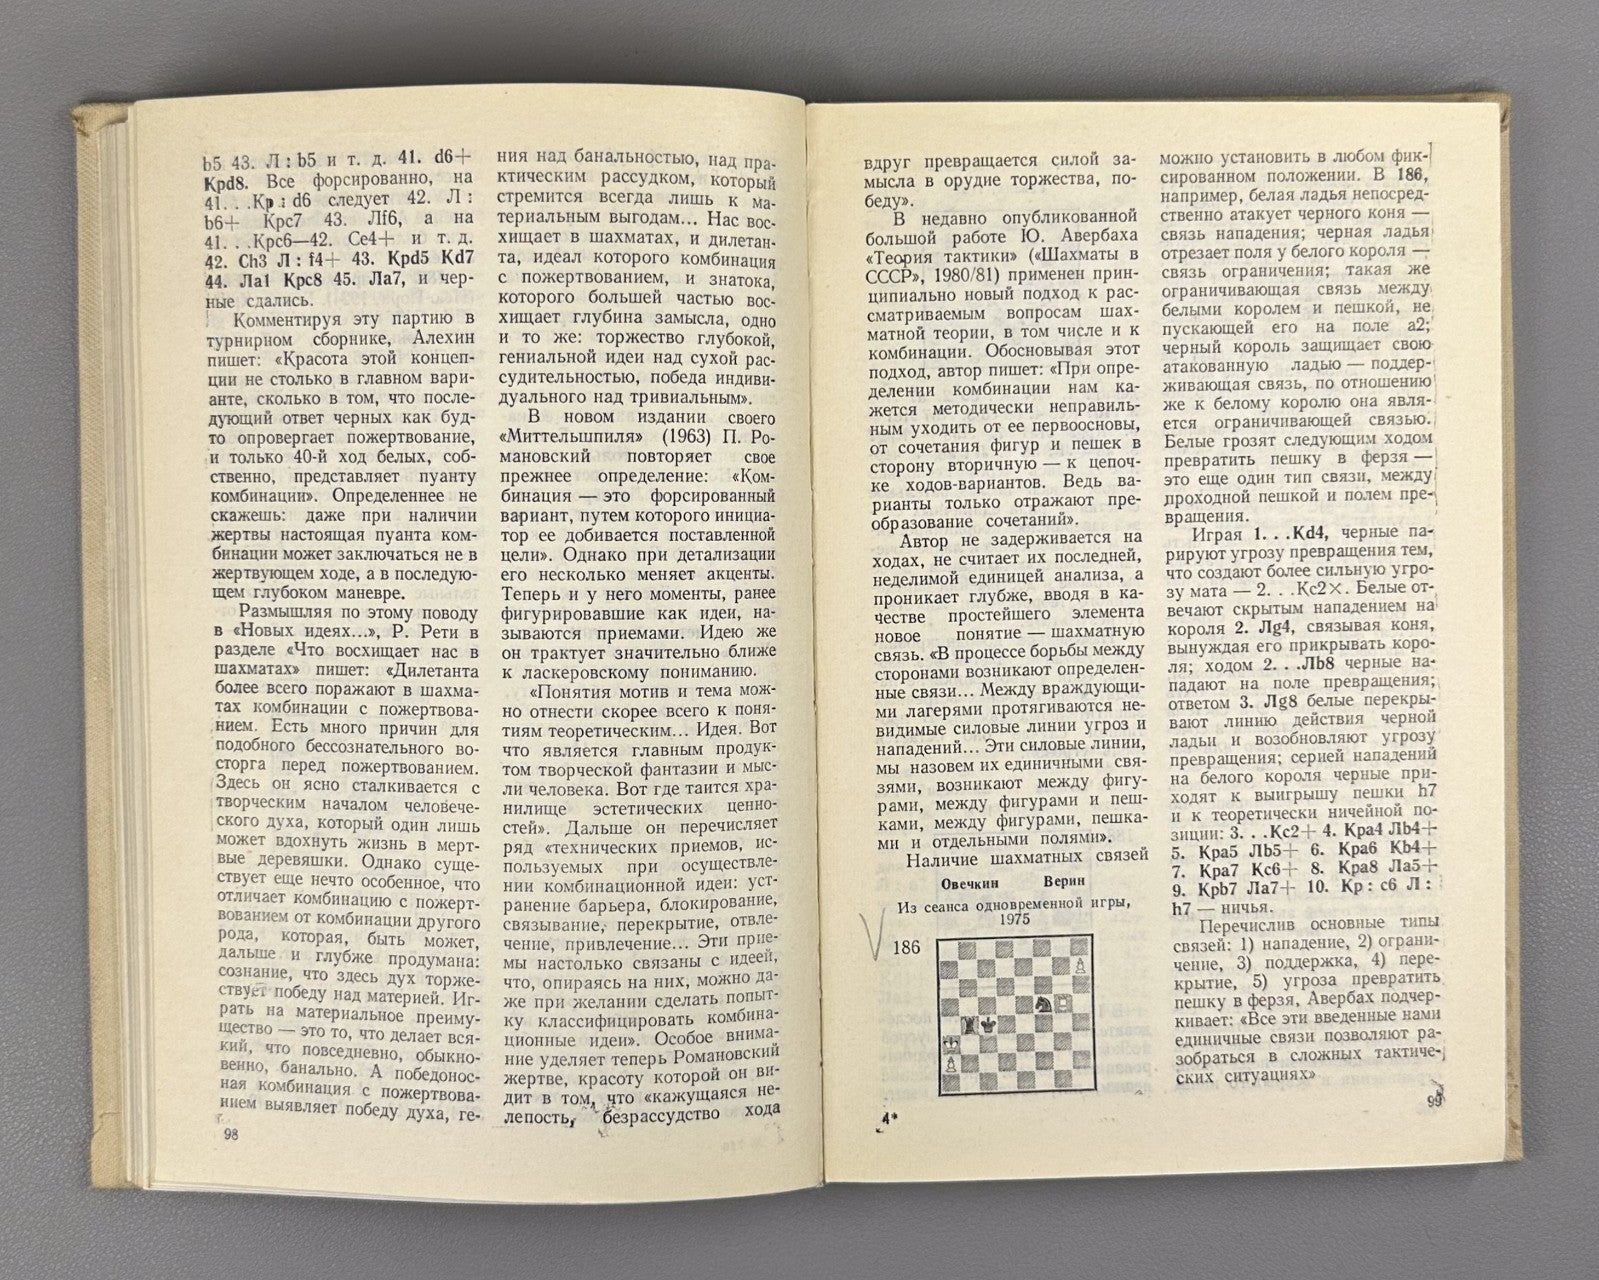 b5 43. Л : b5 и т. д. 41. d6+
Kpd8. Все форсированно, на
41. . .Kp : d6 следует 42. Л :
b6+ Kpc7 43. Лf6, а на
41. . .Kpc6—42. Ce4+ и т. д.
42. Ch3 Л : f4+ 43. Kpd5 Kd7
44. Ла1 Kpc8 45. Ла7, и чер-
ные сдались.
Комментируя эту партию в
турнирном сборнике, Алехин
пишет: «Красота этой концеп-
ции не столько в главном вари-
анте, сколько в том, что после-
дующий ответ черных как буд-
то опровергает пожертвование,
и только 40-й ход белых, соб-
ственно, представляет пуанту
комбинации». Определеннее не
скажешь: даже при наличии
жертвы настоящая пуанта ком-
бинации может заключаться не в
жертвующем ходе, а в последую-
щем глубоком маневре.
Размышляя по этому поводу
в «Новых идеях...», Р. Рети в
разделе «Что восхищает нас в
шахматах» пишет: «Дилетанта
более всего поражают в шахма-
тах комбинации с пожертвова-
нием. Есть много причин для
подобного бессознательного во-
сторга перед пожертвованием.
Здесь он ясно сталкивается с
творческим началом человече-
ского духа, который один лишь
может вдохнуть жизнь в мерт-
вые деревяшки. Однако суще-
ствует еще нечто особенное, что
отличает комбинацию с пожерт-
вованием от комбинации другого
рода, которая, быть может,
дальше и глубже продумана:
сознание, что здесь дух торже-
ствует победу над материей. Иг-
рать на материальное преиму-
щество — это то, что делает вся-
кий, что повседневно, обыкно-
венно, банально. А победонос-
ная комбинация с пожертвова-
нием выявляет победу духа, ге-
98
ния над банальностью, над пра-
ктическим рассудком, который
стремится всегда лишь к ма-
териальным выгодам... Нас вос-
хищает в шахматах, и дилетан-
та, идеал которого комбинация
с пожертвованием, и знатока,
которого большей частью вос-
хищает глубина замысла, одно
и то же: торжество глубокой,
гениальной идеи над сухой рас-
судительностью, победа индиви-
дуального над тривиальным».
В новом издании своего
«Миттельшпиля» (1963) П. Ро-
мановский повторяет свое
прежнее определение: «Ком-
бинация — это форсированный
вариант, путем которого инициа-
тор ее добивается поставленной
цели». Однако при детализации
его несколько меняет акценты.
Теперь и у него моменты, ранее
фигурировавшие как идеи, на-
зываются приемами. Идею же
он трактует значительно ближе
к ласкеровскому пониманию.
«Понятия мотив и тема мож-
но отнести скорее всего к поня-
тиям теоретическим... Идея. Вот
что является главным продук-
том творческой фантазии и мыс-
ли человека. Вот где таится хра-
нилище эстетических ценно-
стей». Дальше он перечисляет
ряд «технических приемов, ис-
пользуемых при осуществле-
нии комбинационной идеи: уст-
ранение барьера, блокирование,
связывание, перекрытие, отвле-
чение, привлечение... Эти прие-
мы настолько связаны с идеей,
что, опираясь на них, можно да-
же при желании сделать попыт-
ку классифицировать комбина-
ционные идеи». Особое внима-
ние уделяет теперь Романовский
жертве, красоту которой он ви-
дит в том, что «кажущаяся не-
лепость, безрассудство хода
вдруг превращается силой за-
мысла в орудие торжества, по-
беду».
В недавно опубликованной
большой работе Ю. Авербаха
«Теория тактики» («Шахматы в
СССР», 1980/81) применен прин-
ципиально новый подход к рас-
сматриваемым вопросам шах-
матной теории, в том числе и к
комбинации. Обосновывая этот
подход, автор пишет: «При опре-
делении комбинации нам ка-
жется методически неправиль-
ным уходить от ее первоосновы,
от сочетания фигур и пешек в
сторону вторичную — к цепоч-
ке ходов-вариантов. Ведь ва-
рианты только отражают пре-
образование сочетаний».
Автор не задерживается на
ходах, не считает их последней,
неделимой единицей анализа, а
проникает глубже, вводя в ка-
честве простейшего элемента
новое понятие — шахматную
связь. «В процессе борьбы между
сторонами возникают определен-
ные связи... Между враждующи-
ми лагерями протягиваются не-
видимые силовые линии угроз и
нападений... Эти силовые линии,
мы назовем их единичными свя-
зями, возникают между фигу-
рами, между фигурами и пеш-
ками, между фигурами, пешка-
ми и отдельными полями».
Наличие шахматных связей
Овечкин Верин
Из сеанса одновременной игры,
1975
186
4*
можно установить в любом фик-
сированном положении. В 186,
например, белая ладья непосред-
ственно атакует черного коня —
связь нападения; черная ладья
отрезает поля у белого короля —
связь ограничения; такая же
ограничивающая связь между
белыми королем и пешкой, не
пускающей его на поле a2;
черный король защищает свою
атакованную ладью — поддер-
живающая связь, по отношению
же к белому королю она явля-
ется ограничивающей связью.
Белые грозят следующим ходом
превратить пешку в ферзя —
это еще один тип связи, между
проходной пешкой и полем пре-
вращения.
Играя 1. . .Kd4, черные па-
рируют угрозу превращения тем,
что создают более сильную угро-
зу мата — 2. . .Kc2×. Белые от-
вечают скрытым нападением на
короля 2. Лg4, связывая коня,
вынуждая его прикрывать коро-
ля; ходом 2. . .Лb8 черные на-
падают на поле превращения;
ответом 3. Лg8 белые перекры-
вают линию действия черной
ладьи и возобновляют угрозу
превращения; серией нападений
на белого короля черные при-
ходят к выигрышу пешки h7
и к теоретически ничейной по-
зиции: 3. . .Kc2+ 4. Kpa4 Лb4+
5. Kpa5 Лb5+ 6. Kpa6 Kb4+
7. Kpa7 Kc6+ 8. Kpa8 Ла5+
9. Kpb7 Ла7+ 10. Kp : c6 Л :
h7 — ничья.
Перечислив основные типы
связей: 1) нападение, 2) ограни-
чение, 3) поддержка, 4) пере-
крытие, 5) угроза превратить
пешку в ферзя, Авербах подчер-
кивает: «Все эти введенные нами
единичные связи позволяют ра-
зобраться в сложных тактиче-
ских ситуациях»
99